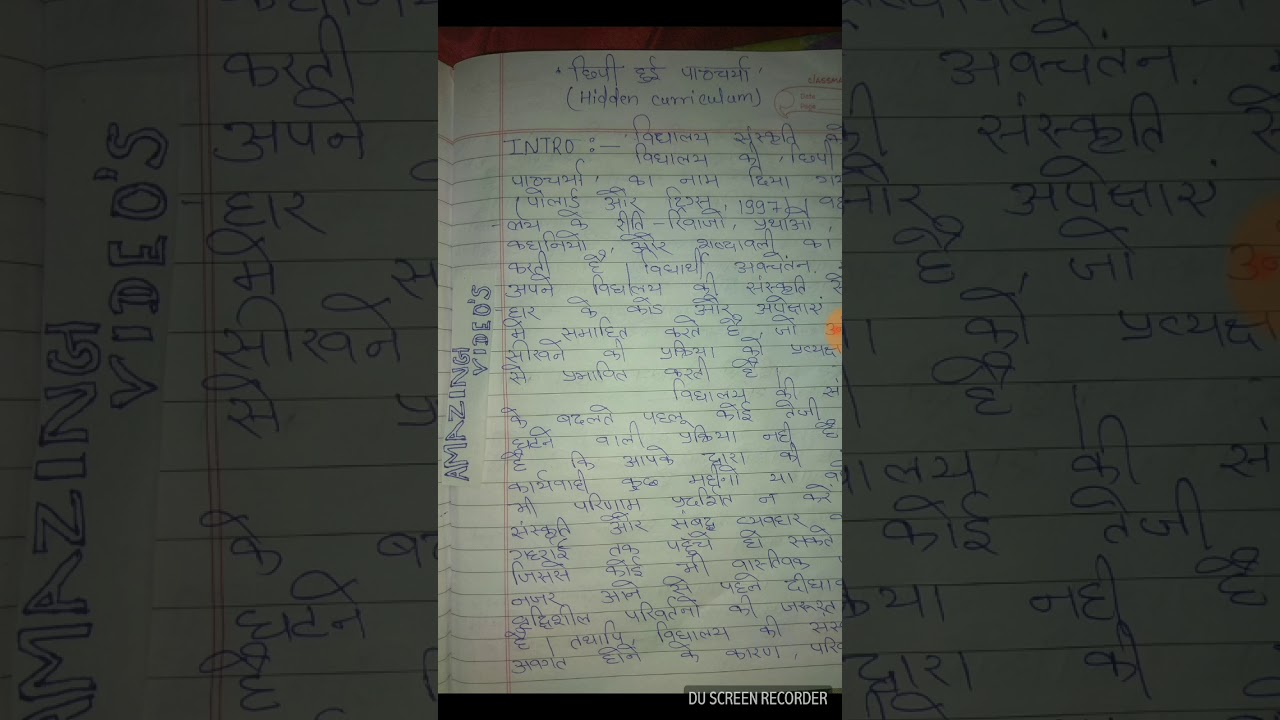 ' छिपी हुई पाठ्यचर्या '
(Hidden curriculum)
classm
Date
Page
INTRO :- विद्यालय संस्कृति
विद्यालय की 'छिपी
पाठ्यचर्या' का नाम दिया
(पोलार्ड और , 1997)।
के रीति-रिवाजों, प्रथाओं,
और शब्दावली का
करती है। विद्यार्थी अवचेतन
अपने विद्यालय की संस्कृति
हार के कोड और अपेक्षाएं
में समाहित करते है, जो
सीखने की प्रक्रिया को प्रत्यक्ष
से प्रभावित करती है।
विद्यालय की सं
के बदलते पहलू कोई तेजी
घटने वाली प्रक्रिया नहीं है
है कि आपके द्वारा की
कार्यवाही कुछ महीनों या
भी परिणाम प्रदर्शित न करें
संस्कृति और संबद्ध व्यवहार
गहराई तक पहुंचे हो सकते
जिससे कोई भी वास्तविक
नजर आने से पहले
परिवर्तनों की जरूरत
है। तथापि, विद्यालय की संस
अवगत होने के कारण, परि
AMAZING
VIDEO'S
DU SCREEN RECORDER